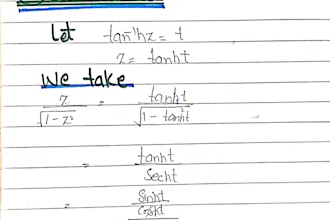 Let tan⁻¹hz = t
z = tanht
We take
z/√(1-z²) = tanht/√(1-tanh²t)
= tanht/Secht
= Sinht/Cosht